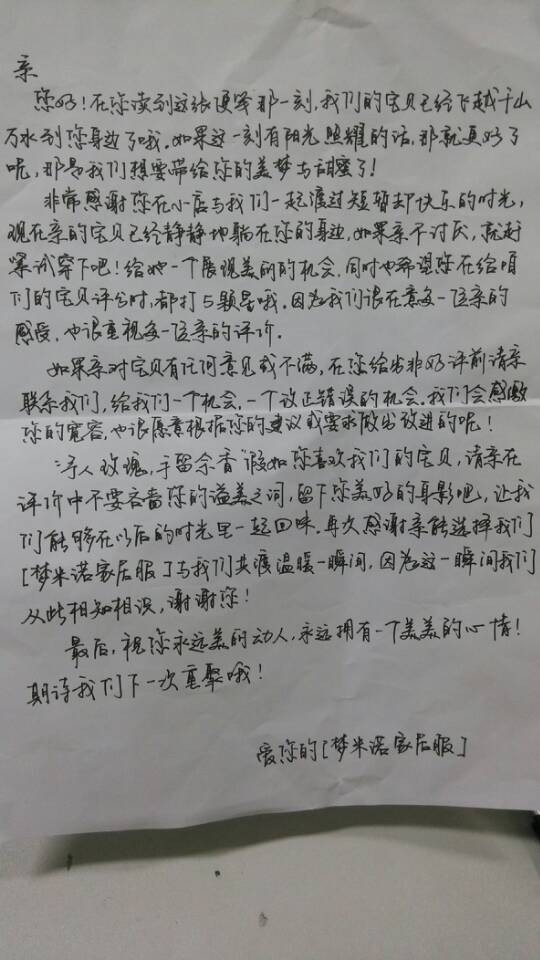 亲
您好!在您读到这张便笺那一刻,我们的宝贝已经飞越千山
万水到您身边了哦.如果这一刻有阳光照耀的话,那就更好了
呢,那是我们想要带给您的美梦与甜蜜了!
非常感谢您在小店与我们一起渡过短暂却快乐的时光,
现在亲的宝贝已经静静地躺在您的身边,如果亲不讨厌,就赶
紧试穿下吧!给她一个展现美丽的机会,同时也希望您在给咱
们的宝贝评分时,都打5颗星哦.因为我们很在意每一位亲的
感受,也很重视每一位亲的评价.
如果亲对宝贝有任何意见或不满,在您给出非好评前请亲
联系我们,给我们一个机会,一个改正错误的机会.我们会感激
您的宽容,也很愿意根据您的建议或要求做出改进的呢!
予人玫瑰,手留余香 假如您喜欢我们的宝贝,请亲在
评价中不要吝啬您的溢美之词,留下您美好的身影吧,让我
们能够在以后的时光里一起回味.再次感谢亲能选择我们
[梦米诺家居服]与我们共渡温暖一瞬间,因为这一瞬间我们
从此相知相识,谢谢您!
最后,祝您永远美的动人,永远拥有一个美美的心情!
期待我们下一次重聚哦!
爱您的[梦米诺家居服]